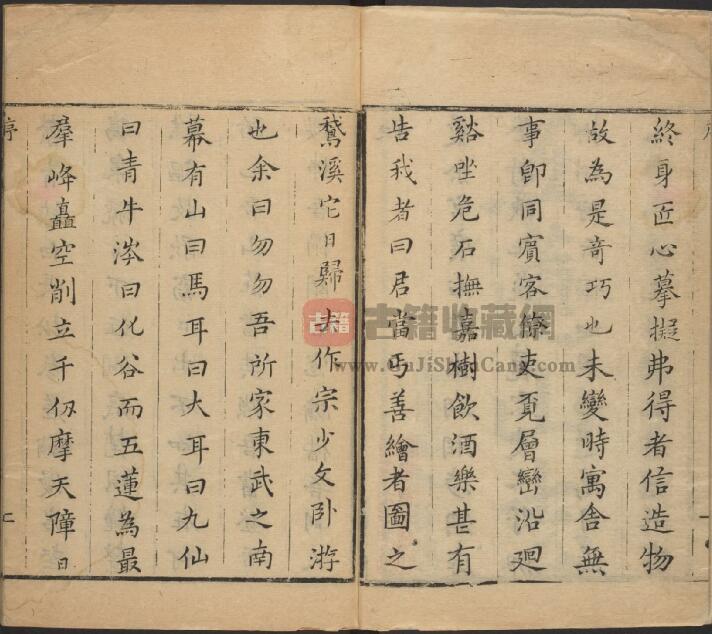 終身匠心摹擬弗得者信造物
故為是奇巧也未變時寓舍無
事卽同賓客僚吏覓層巒沿廻
谿坐危石撫嘉樹飲酒樂甚有
告我者曰君當丐善繪者圖之
鵞溪它日歸去作宗少文卧游
也余曰勿勿吾所家東武之南
幕有山曰馬耳曰大耳曰九仙
曰青牛涔曰化谷而五蓮為最
羣峰矗空削立千仞摩天障日
序
古籍
古籍收藏網
www.GuJiShouCang.com